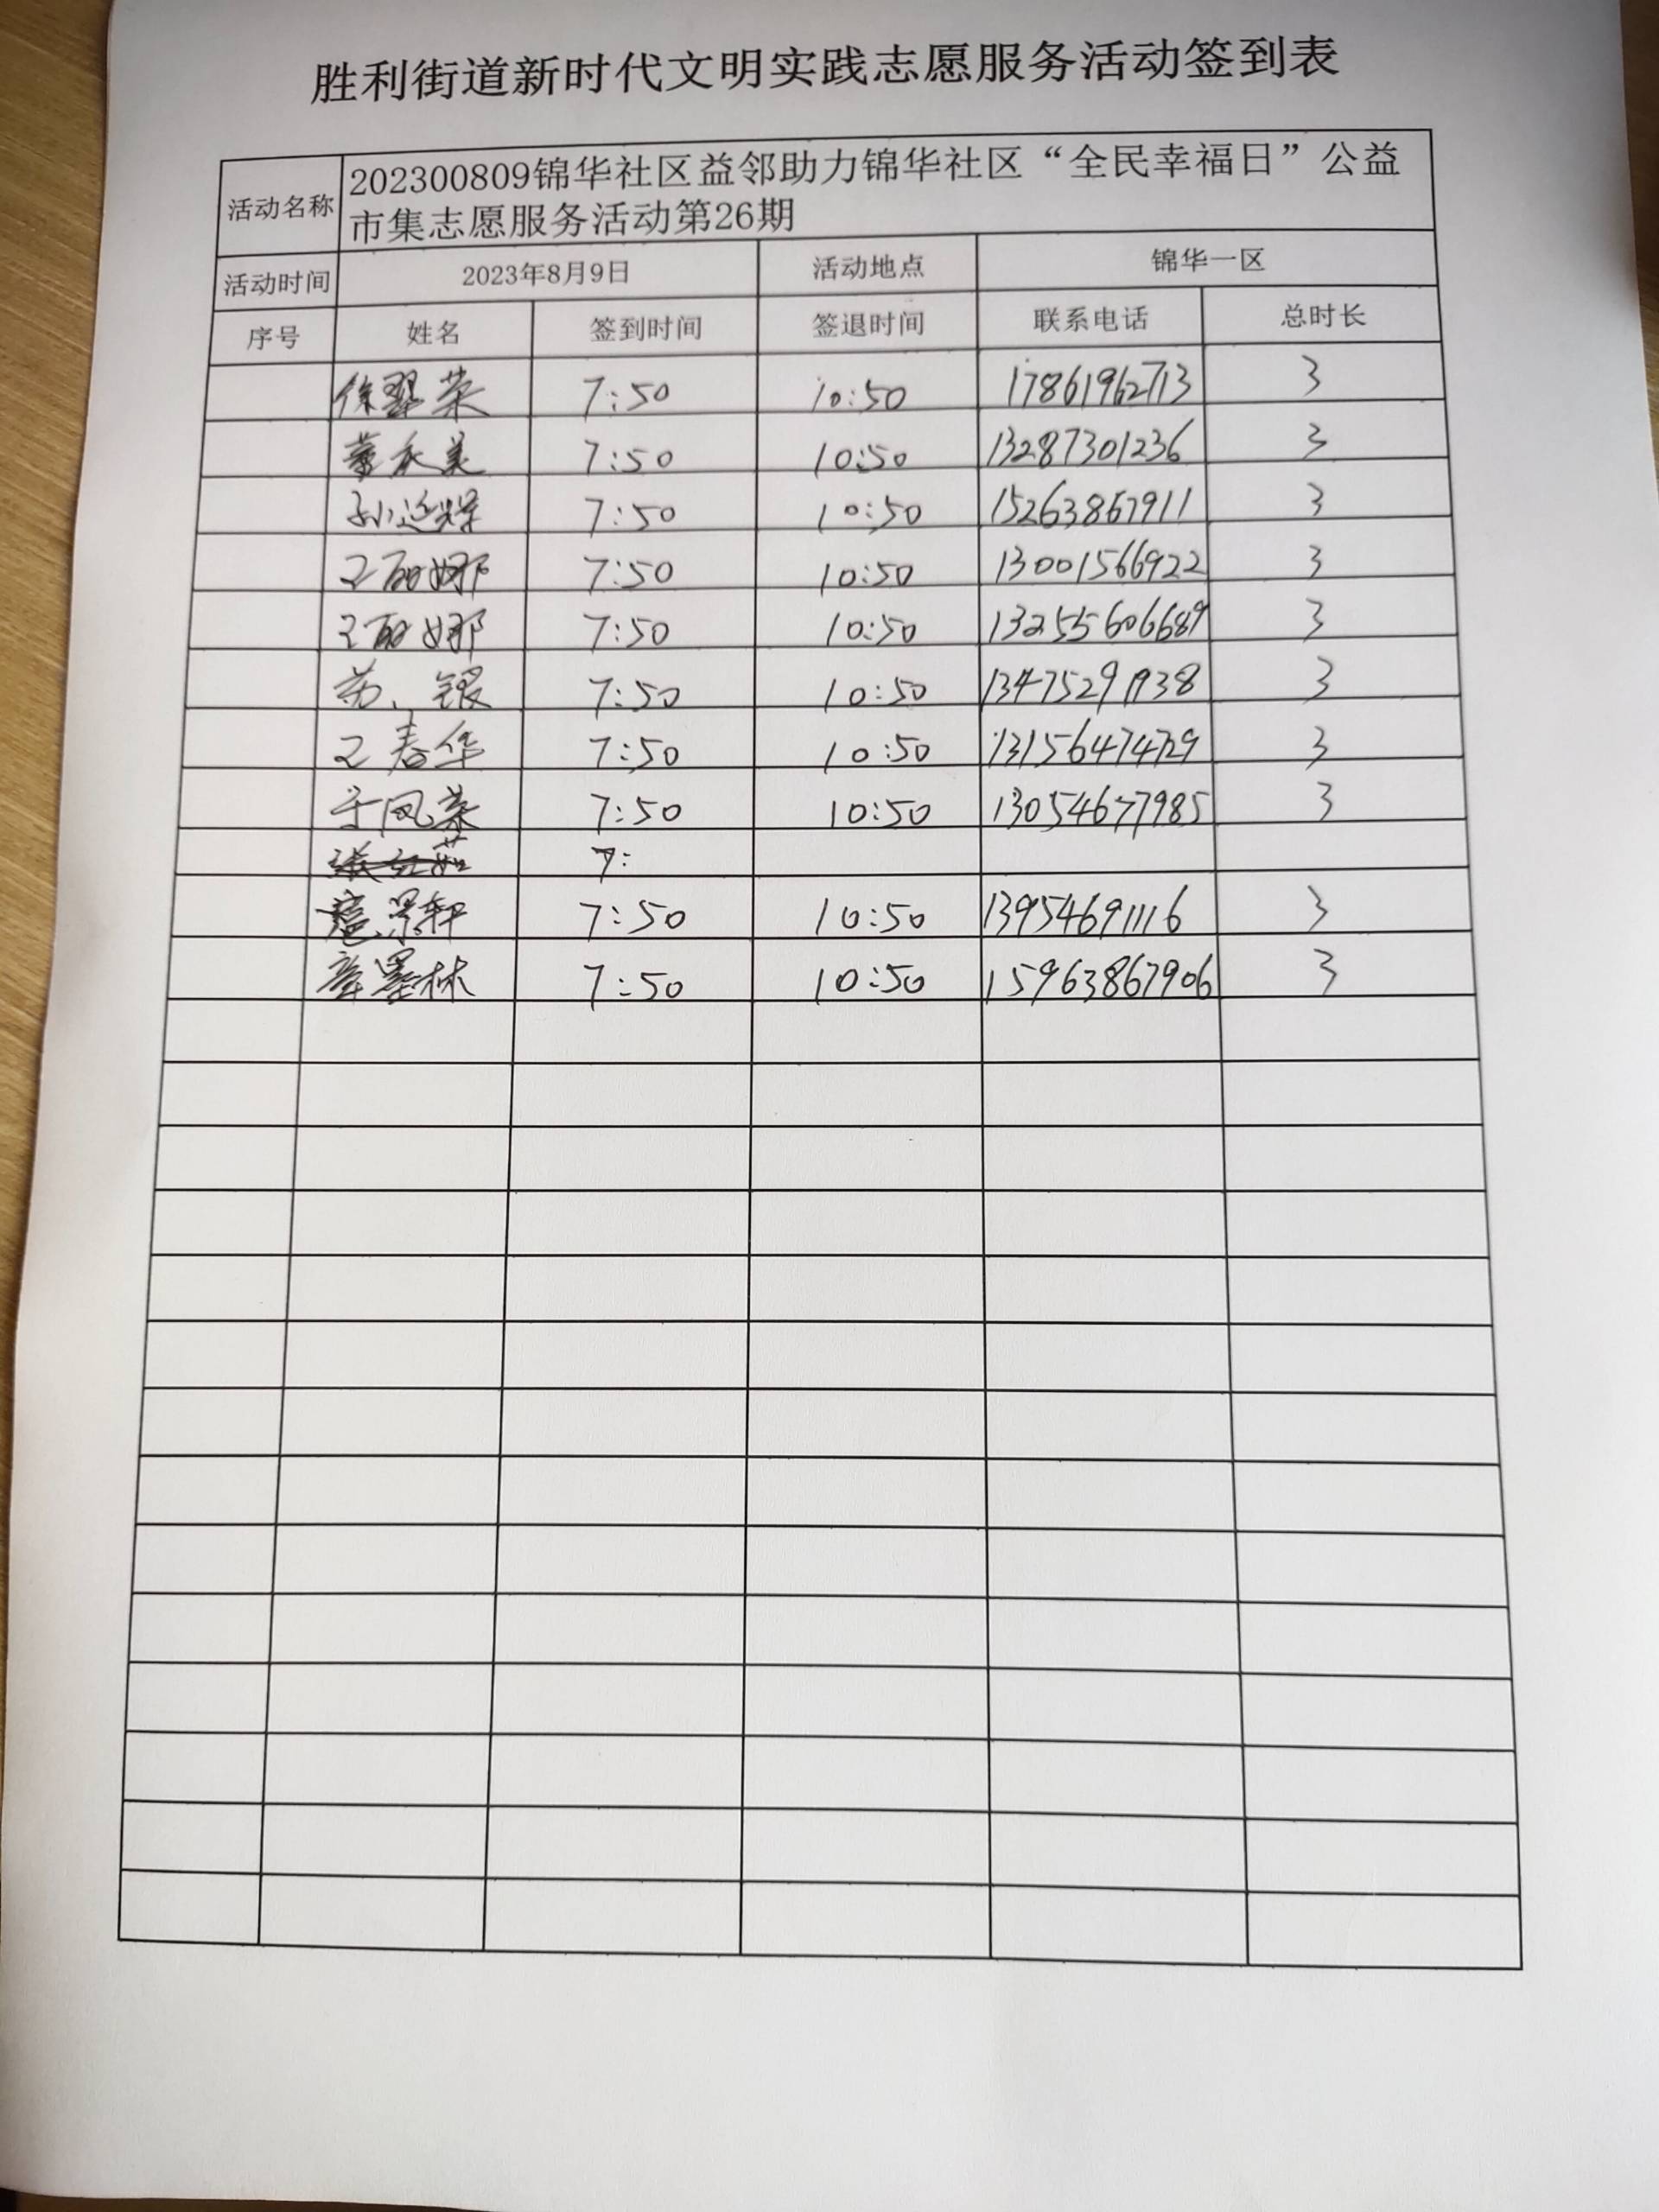 胜利街道新时代文明实践志愿服务活动签到表
活动名称 202300809锦华社区益邻助力锦华社区“全民幸福日”公益
市集志愿服务活动第26期
活动时间 2023年8月9日 活动地点 锦华一区
序号 姓名 签到时间 签退时间 联系电话 总时长
徐翠荣 7:50 10:50 17861962713 3
董永美 7:50 10:50 13287301236 3
孙延辉 7:50 10:50 15263867911 3
王丽娜 7:50 10:50 13001566922 3
王丽娜 7:50 10:50 13255606689 3
苏银 7:50 10:50 13475291938 3
王春华 7:50 10:50 13156474729 3
于凤荣 7:50 10:50 13054677985 3
张红茹 7:
景和 7:50 10:50 13954691116 3
墨林 7:50 10:50 15963867906 3